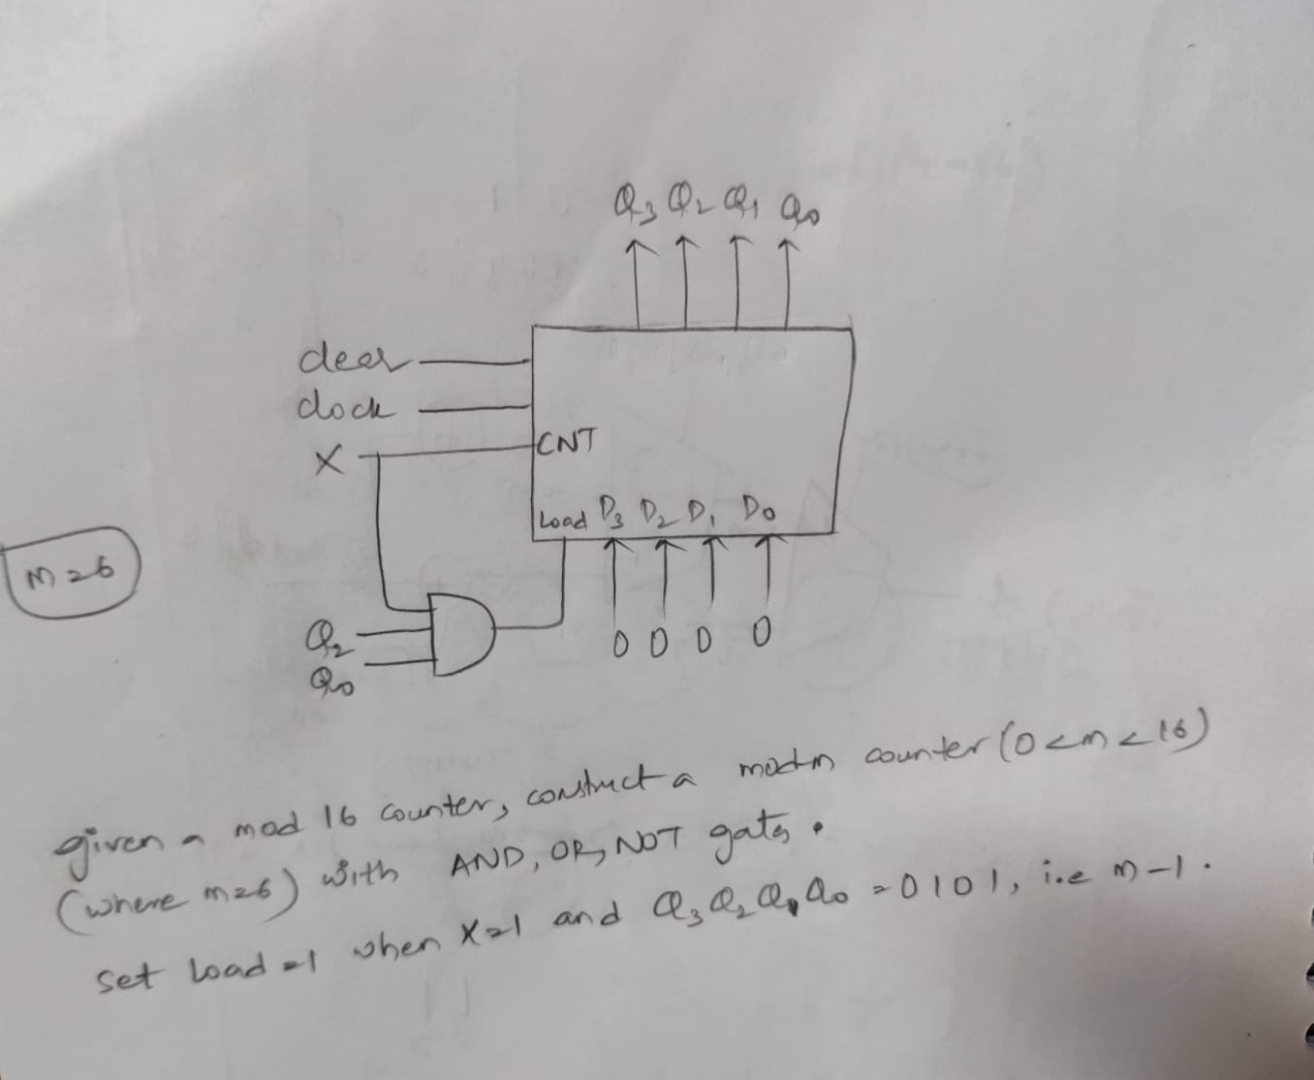 Q3 Q2 Q1 Q0
clear
clock
X
CNT
Load D3 D2 D1 D0
m=6
Q2
Q0
0 0 0 0
given a mod 16 counter, construct a modm counter (0<m<16)
(where m=6) with AND, OR, NOT gates.
set load=1 when X=1 and Q3 Q2 Q1 Q0 = 0101, i.e m-1.